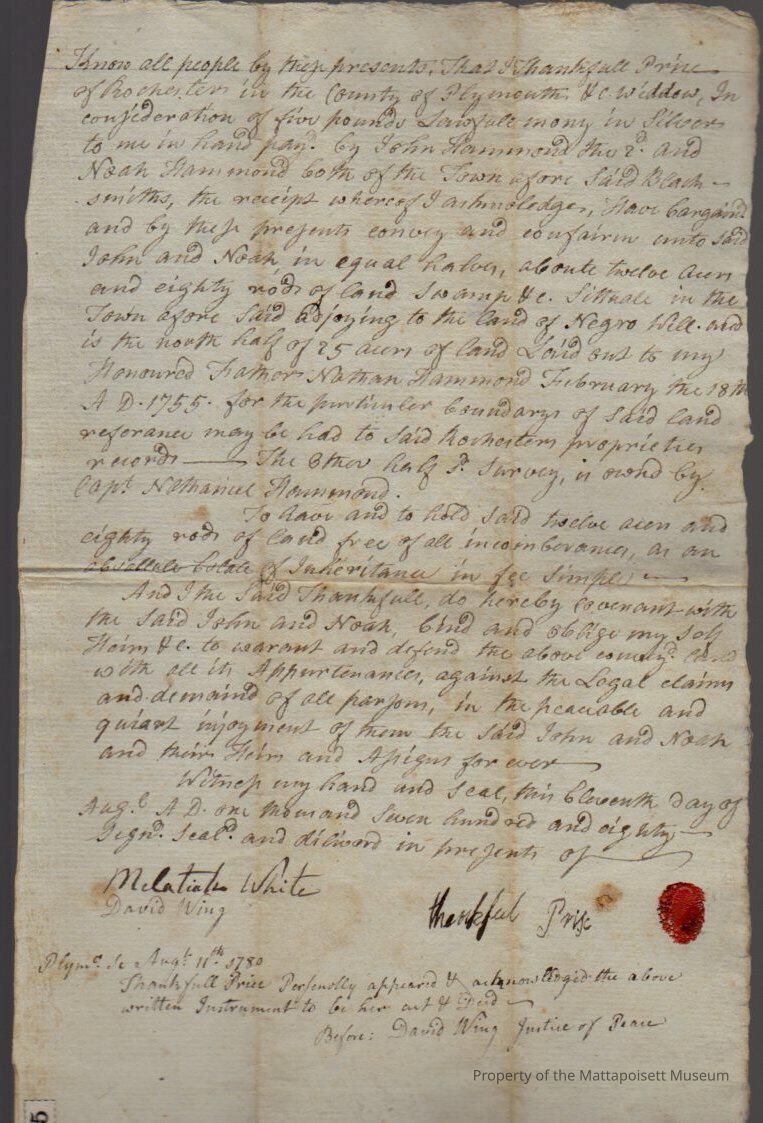 Know all people by these presents, That I Thankfull Price
of Rochester in the County of Plymouth &c. Widdow, In
consideration of five pounds Lawfull mony in Silver
to me in hand payd. by John Hammond the 2d. and
Noah Hammond both of the Town afore Said Black-
smiths, the receipt whereof I acknowledge, Have bargaind
and by these presents convey and confairm unto said
John and Noah in equal halves, aboute twelve acers
and eighty rods of land Swamp &c. Sittuate in the
Town afore Said adjoying to the land of Negro Will. and
is the north half of 25 acers of land Laid out to my
Honoured Father Nathan Hammond February the 18th
A D. 1755. for the purticuler boundarys of Said land
referance may be had to Said Rochesters proprieties
records — The other half Pr. Survey, is ownd by
Capt. Nathaniel Hammond.
To have and to hold said twelve acers and
eighty rods of land free of all incomberances, as an
absollute Estate of Inheritance in fee Simple —
And I the Said Thankfull, do hereby Covenant with
the said John and Noah, bind and oblige my Self
Heirs &c. to warant and defend the above convayd. land
with all its Appurtenances, against the Legal claims
and demaind of all parsons, in the peaceable and
quiart injoyment of them the Said John and Noah
and their Heirs and Assigns for ever —
Witness my hand and Seal, this Eleventh Day of
Augst. A D. one thousand Seven hundred and eighty —
Signd. Seald. and diliverd in presents of —
Melatiah White
David Wing
thenkful Prise
Plymo. Sc Augt. 11th. 1780
Thankfull Price Personolly appeared & acknowledged the above
written Instrument to be her act & Deed —
Before: David Wing Justice of Peace
Property of the Mattapoisett Museum
5